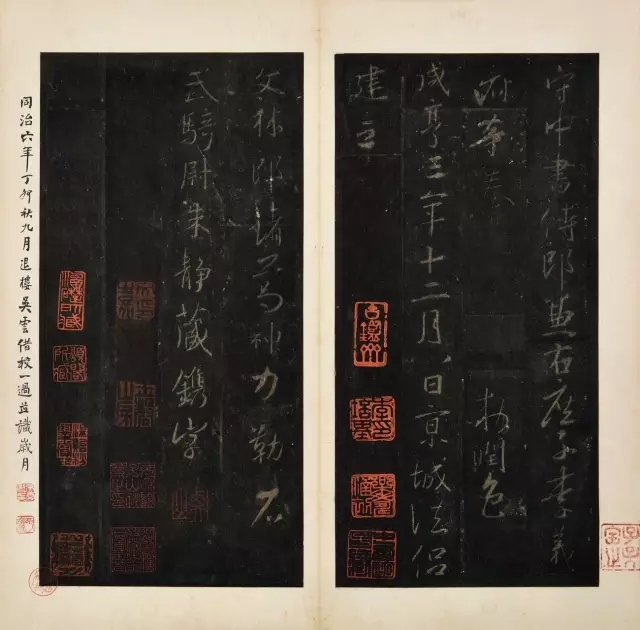 守中書侍郎兼右庶子李義
府等奉 敕潤色
咸亨三年十二月八日京城法侶
建立
文林郎諸葛神力勒石
武騎尉朱靜藏鐫字
同治六年丁卯秋九月退樓吳雲借校一過並識歲月